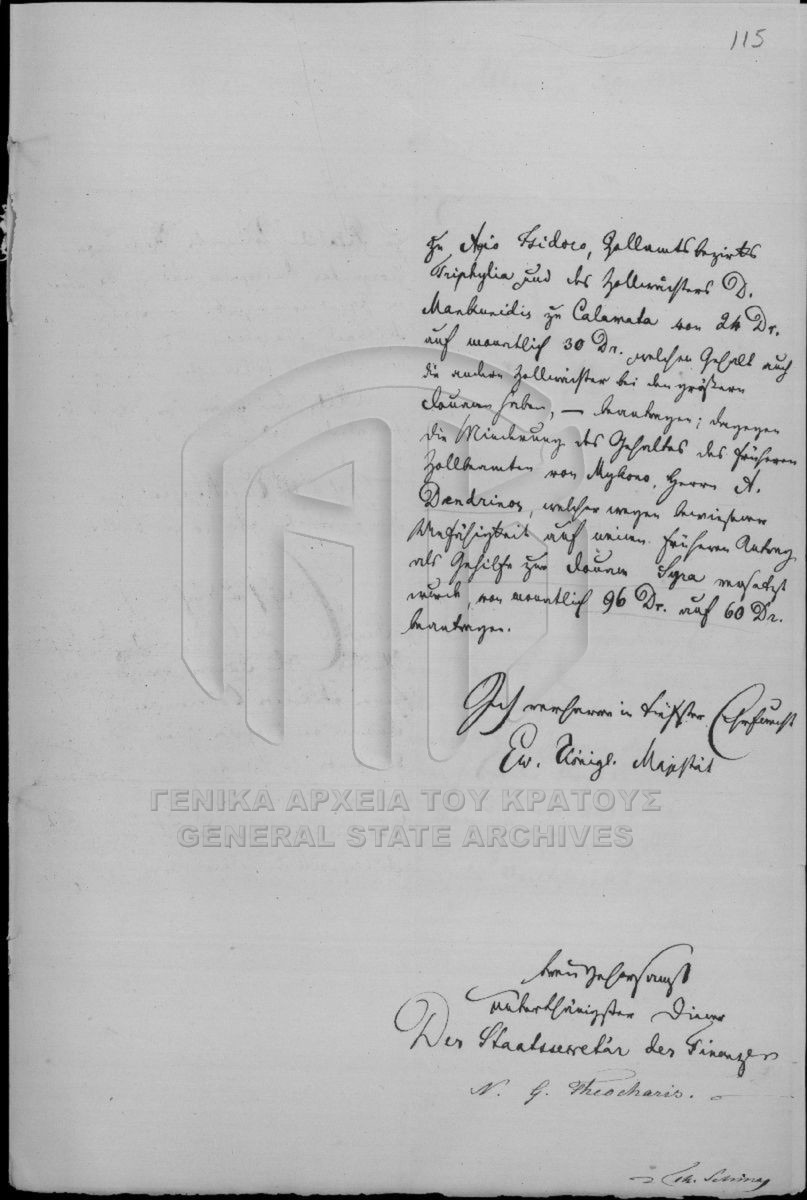 115
zu Agio Isidoro, Zollamtsbezirks
Triphylia und des Zollwächters D.
zu Calamata von 24 Dr.
auf monatlich 30 Dr. welchen Gehalt auch
die andern Zollwächter bei den größern
Douanen haben, — beantragen; dagegen
die Minderung des Gehaltes des früheren
Zollbeamten von Mykono, Herrn A.
Dendrinos, welcher wegen bewiesener
Unfähigkeit auf meinen früheren Antrag
als Gehilfe zur Douane Syra versetzt
wurde, von monatlich 96 Dr. auf 60 Dr.
beantragen.
Ich verharre in tiefster Ehrfurcht
Ew. Königl. Majestät
ΓΕΝΙΚΑ ΑΡΧΕΙΑ ΤΟΥ ΚΡΑΤΟΥΣ
GENERAL STATE ARCHIVES
treu gehorsamst
unterthänigster Diener
Der Staatssecretär der Finanzen
N. G. Theocharis.